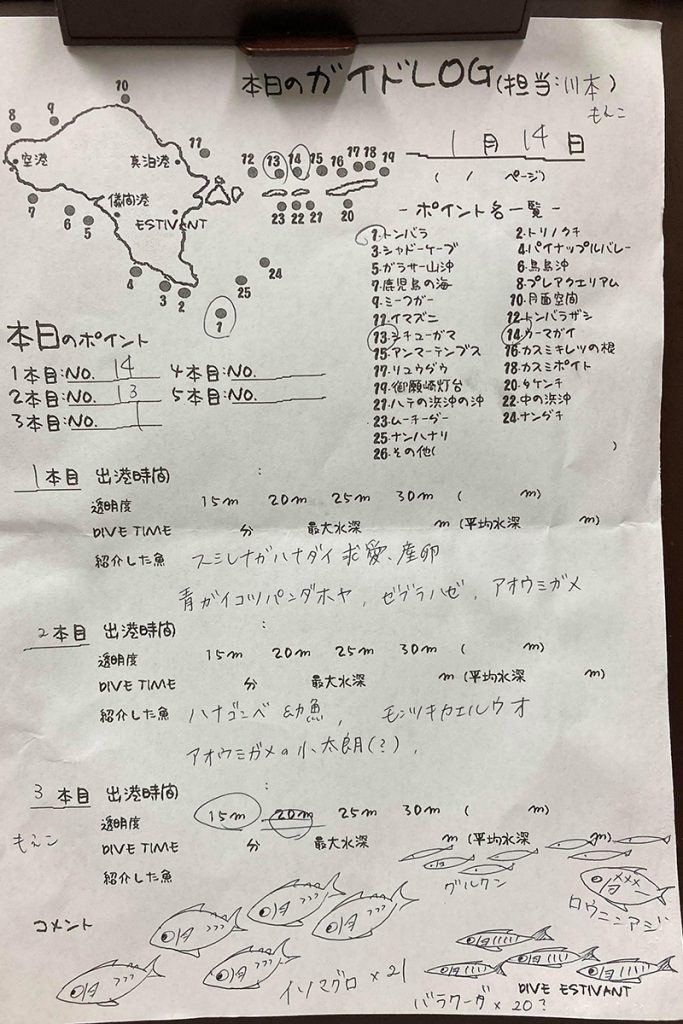 本日のガイドLOG(担当:川本)
もんこ
1月14日
( / ページ)
10
9
8
空港
真泊港
11
12 13 14 15 16 17 18 19
7
6
5
儀間港
ESTIVANT
23 22 21
20
4
3
2
25
24
1
- ポイント名一覧 -
1.トンバラ 2.トリノクチ
3.シャドーケーブ 4.パイナップルバレー
5.ガラサー山沖 6.鳥島沖
7.鹿児島の海 8.プレアクエリアム
9.ミーフガー 10.月面空間
11.イマズニ 12.トンバラザシ
13.シチューガマ 14.ウーマガイ
15.アンマーテンブス 16.カスミキレツの根
17.リュウダウ 18.カスミポイト
19.御願崎灯台 20.タケンチ
21.ハテの浜沖の沖 22.中の浜沖
23.ムーチーダー 24.ナンダチ
25.ナンハナリ
26.その他( )
本日のポイント
1本目:NO. 14 4本目:NO.
2本目:NO. 13 5本目:NO.
3本目:NO. 1
1本目 出港時間 :
透明度 15m 20m 25m 30m ( m)
DIVE TIME 分 最大水深 m (平均水深 m)
紹介した魚 スミレナガハナダイ 求愛、産卵
青ガイコツパンダホヤ, ゼブラハゼ, アオウミガメ
2本目 出港時間 :
透明度 15m 20m 25m 30m ( m)
DIVE TIME 分 最大水深 m (平均水深 m)
紹介した魚 ハナゴンベ 幼魚, モンツキカエルウオ
アオウミガメの小太朗(?),
3本目 出港時間 :
透明度 15m 20m 25m 30m ( m)
もえこ
DIVE TIME 分 最大水深 m (平均水深 m)
紹介した魚
グルクン
ロウニンアジ
コメント
イソマグロ×21
DIVE ESTIVANT
バラクーダ×20?